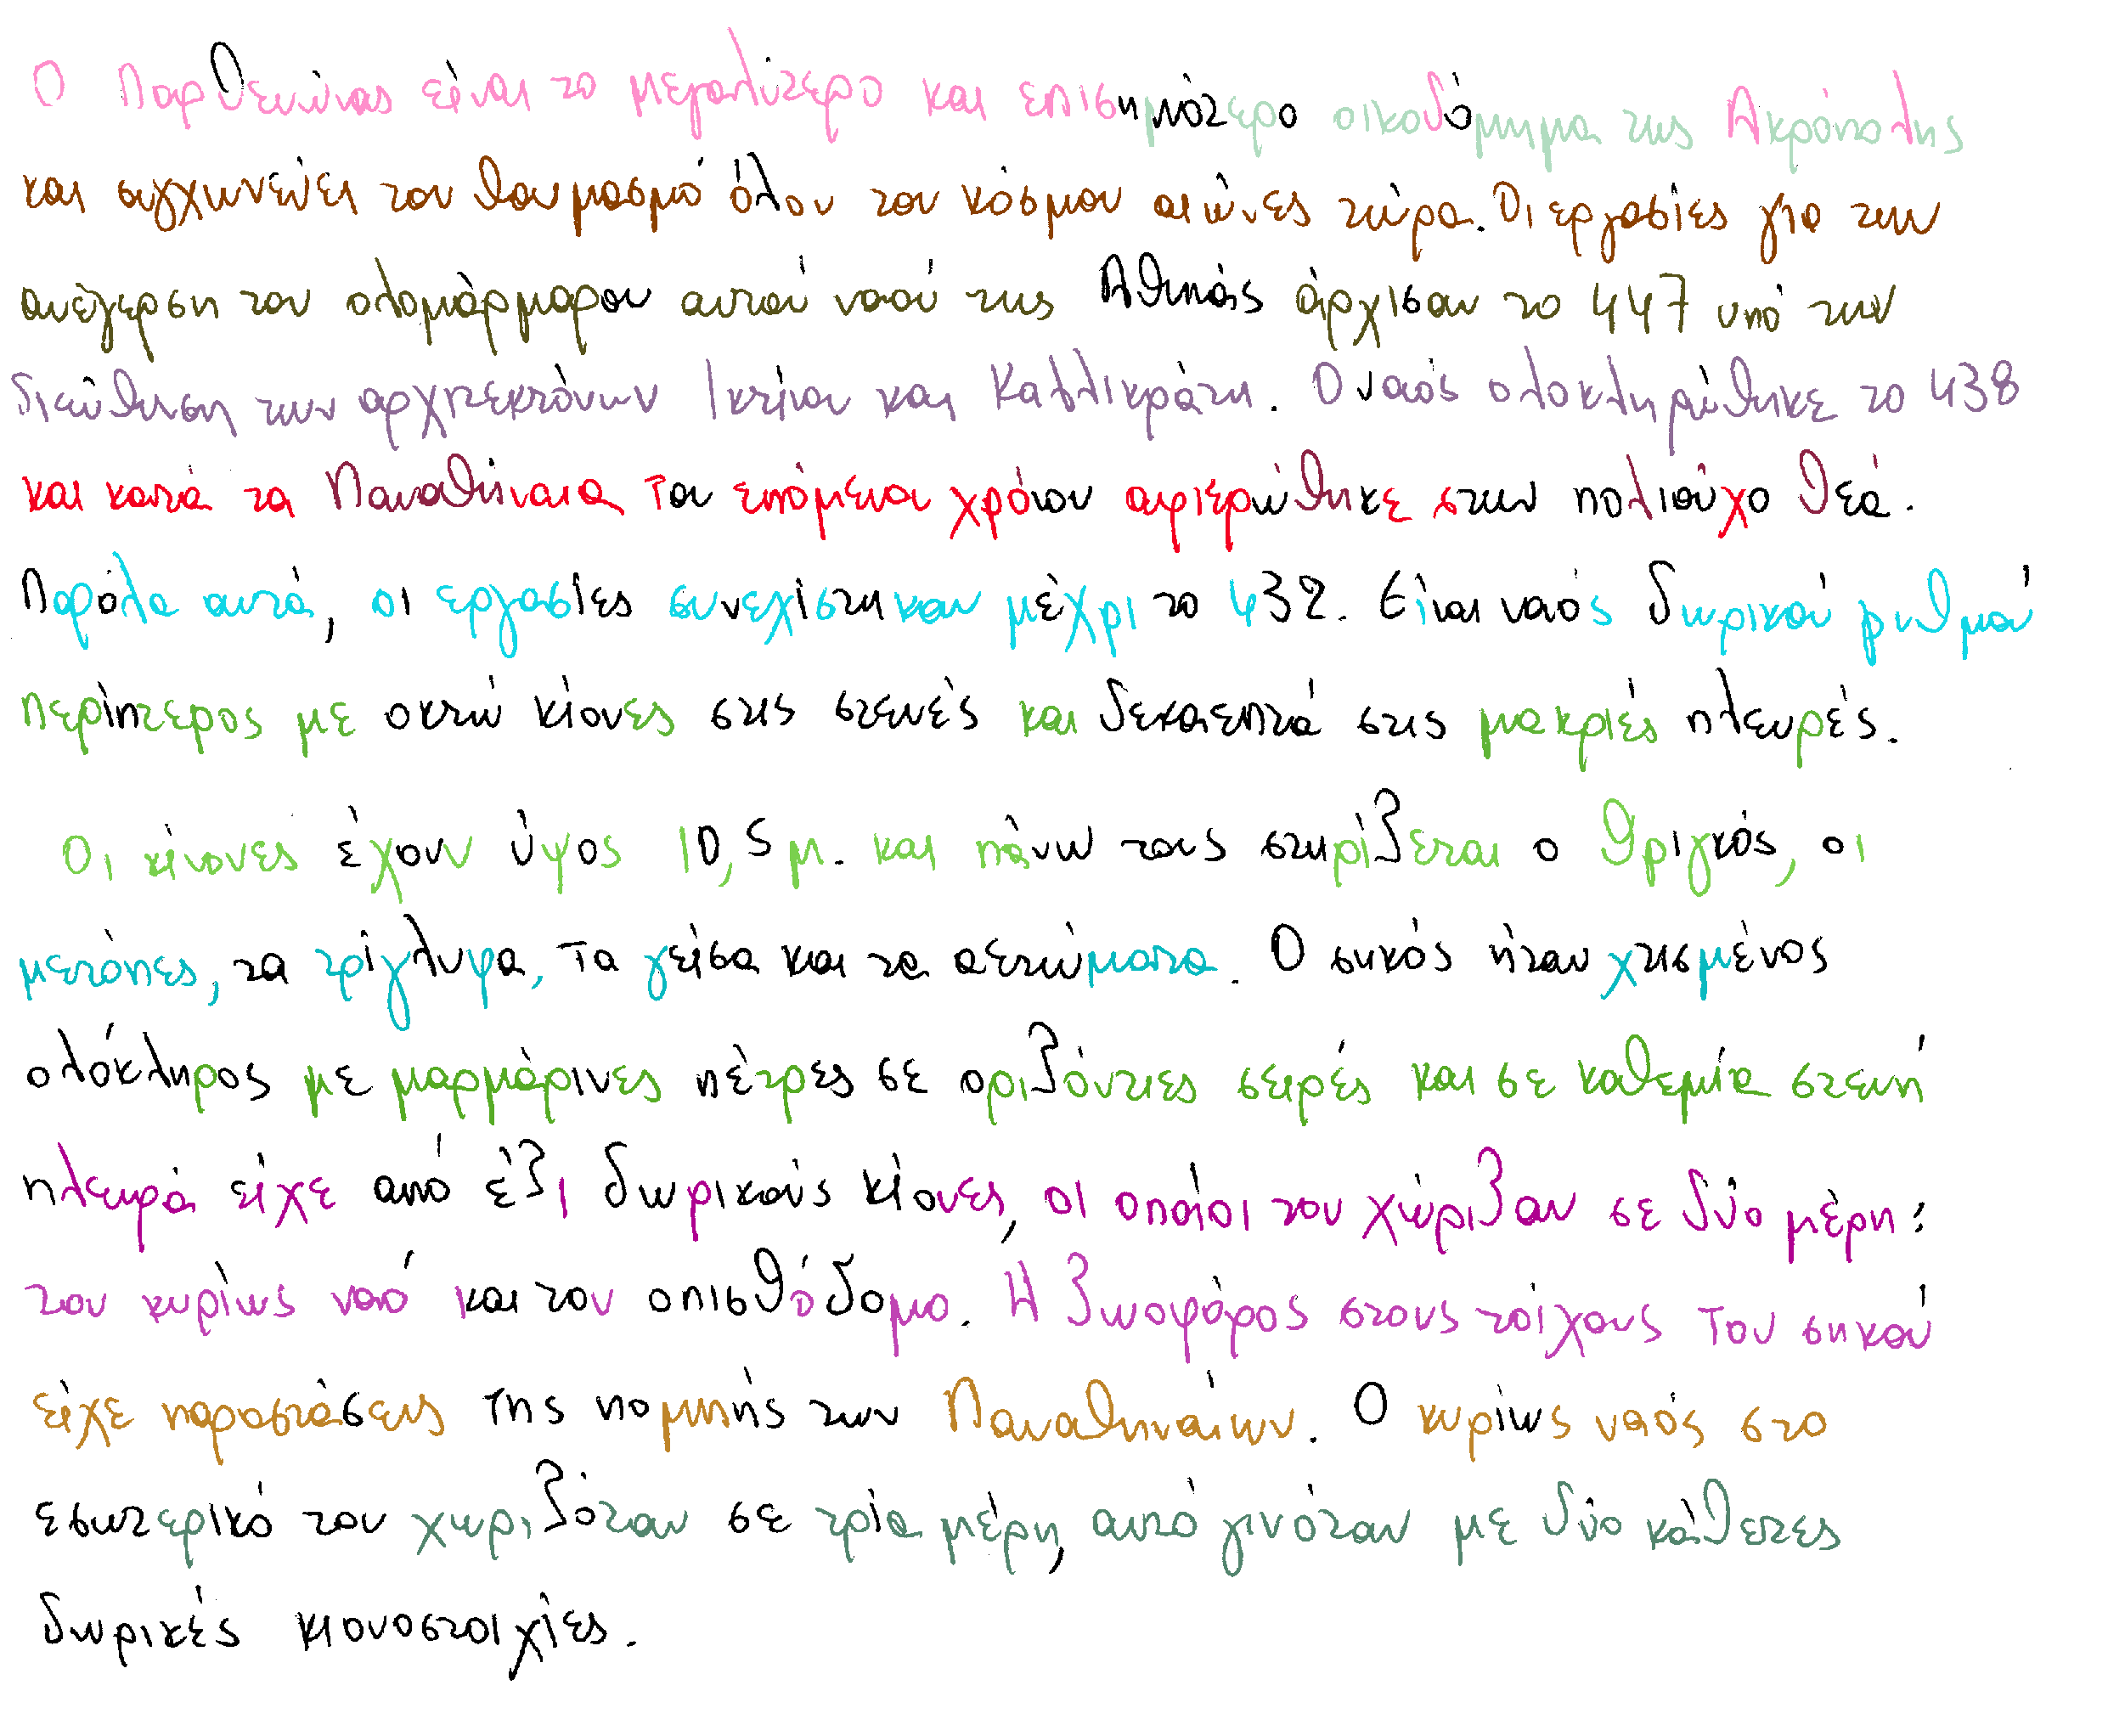 Ο Παρθενώνας είναι το μεγαλύτερο και επισημότερο οικοδόμημα της Ακρόπολης
και συγχωνεύει τον θαυμασμό όλου του κόσμου αιώνες τώρα. Οι εργασίες για την
ανέγερση του ολομάρμαρου αυτού ναού της Αθηνάς άρχισαν το 447 υπό την
διεύθηνση των αρχιτεκτόνων Ικτίνου και Καλλικράτη. Ο ναός ολοκληρώθηκε το 438
και κατά τα Παναθήναια του επόμενου χρόνου αφιερώθηκε στην πολιούχο θεά.
Παρόλα αυτά, οι εργασίες συνεχίστηκαν μέχρι το 432. Είναι ναός δωρικού ρυθμού
περίπτερος με οκτώ κίονες στις στενές και δεκαεπτά στις μακριές πλευρές.
Οι κίονες έχουν ύψος 10,5 μ. και πάνω τους στηρίζεται ο θριγκός, οι
μετόπες, τα τρίγλυφα, τα γείσα και τα αετώματα. Ο σηκός ήταν χτισμένος
ολόκληρος με μαρμάρινες πέτρες σε οριζόντιες σειρές και σε καθεμία στενή
πλευρά είχε από έξι δωρικούς κίονες, οι οποίοι τον χώριζαν σε δύο μέρη:
τον κυρίως ναό και τον οπισθόδομο. Η ζωοφόρος στους τοίχους του σηκού
είχε παραστάσεις της πομπής των Παναθηναίων. Ο κυρίως ναός στο
εσωτερικό του χωριζόταν σε τρία μέρη, αυτό γινόταν με δύο κάθετες
δωρικές κιονοστοιχίες.